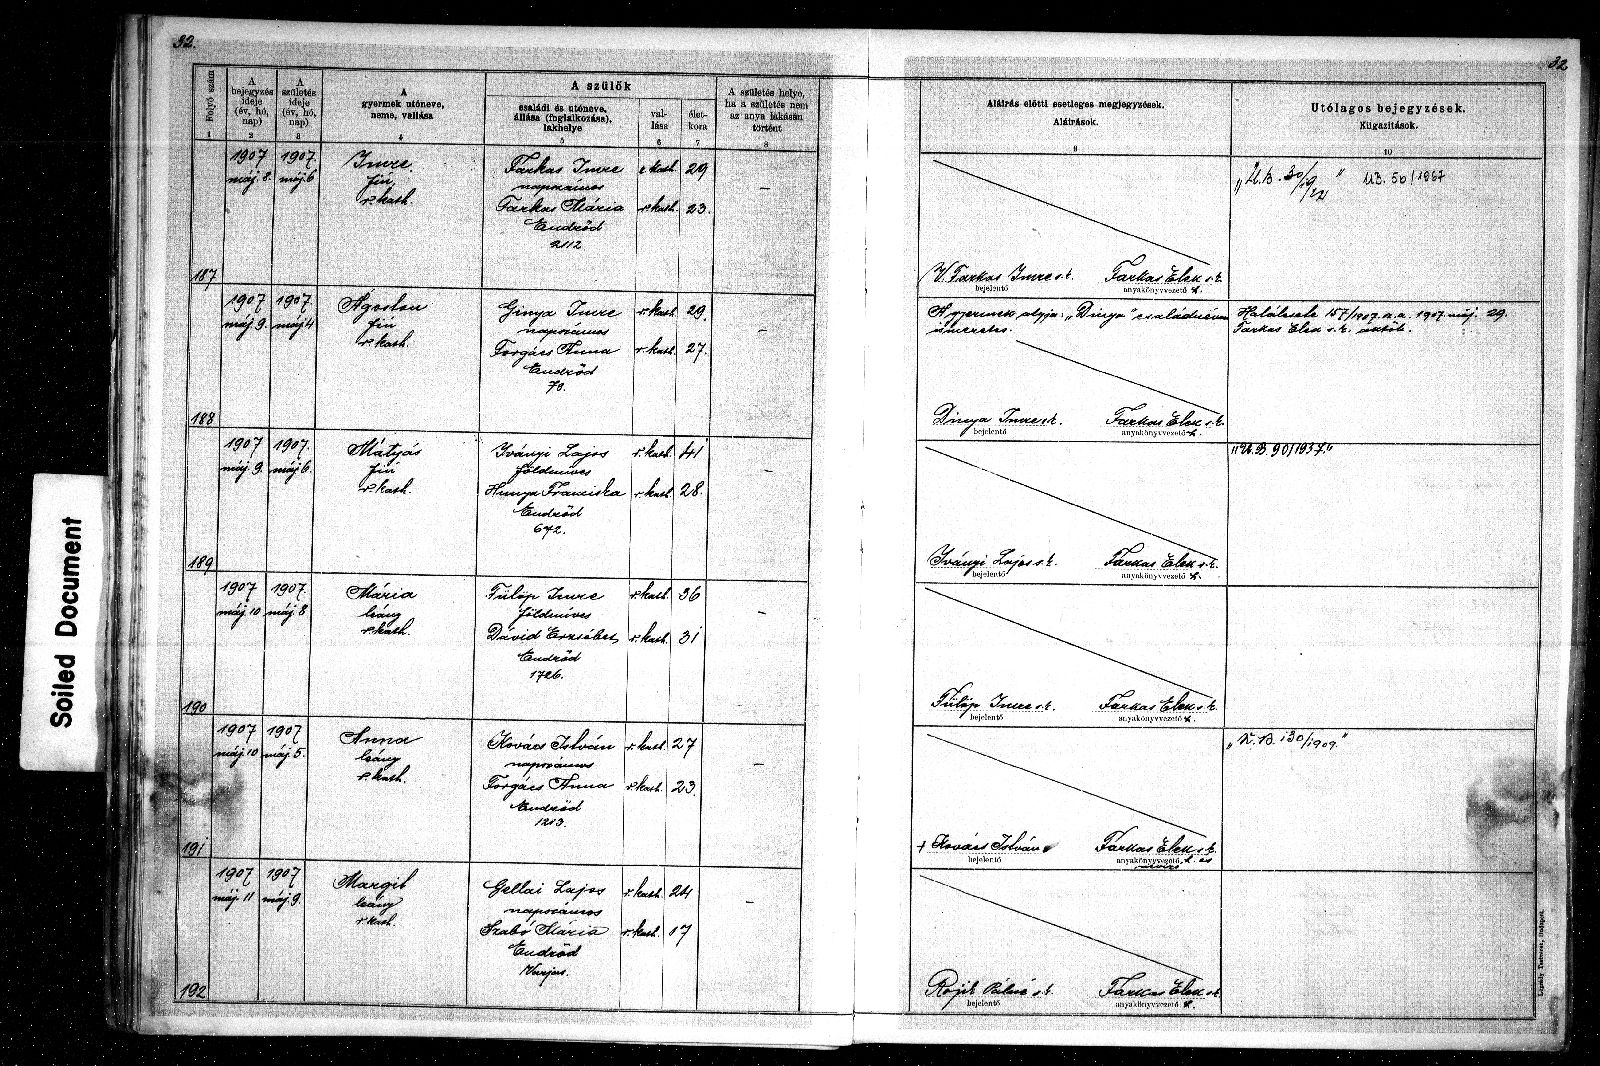 32.
32
Folyó szám
1
A
bejegyzés
ideje
(év, hó,
nap)
2
A
születés
ideje
(év, hó,
nap)
3
A
gyermek utóneve,
neme, vallása
4
A szülők
családi és utóneve,
állása (foglalkozása),
lakhelye
5
val-
lása
6
élet-
kora
7
A születés helye,
ha a születés nem
az anya lakásán
történt
8
Aláírás előtti esetleges megjegyzések.
Aláírások.
9
Utólagos bejegyzések.
Kiigazítások.
10
187
1907 máj. 8.
1907. máj 6
Imre
fiú
r. kath.
Farkas Imre r. kath. 29
napszámos
Farkas Mária r. kath. 23.
Endrőd
2112
–
V. Farkas Imre s. k. Farkas Elek s. k.
bejelentő anyakönyvvezető h.
"U.B. 30/1922" UB. 50/1967
188
1907 máj. 9.
1907. máj 4
Ágoston
fiú
r. kath.
Ginya Imre r. kath. 29.
napszámos
Forgács Anna r. kath. 27.
Endrőd
70.
–
A gyermek atyja: "Dinya" családnéven
ismeretes.
Dinya Imre s. k. Farkas Elek s. k.
bejelentő anyakönyvvezető h.
Halálesete 157/1907. a. a. 1907. máj. 29.
Farkas Elek s. k.
189
1907 máj 9.
1907. máj 6.
Mátyás
fiú
r. kath.
Iványi Lajos r. kath. 41
földmíves
Hunya Franciska r. kath. 28.
Endrőd
672.
–
Iványi Lajos s. k. Farkas Elek s. k.
bejelentő anyakönyvvezető h.
"U.B 90/1937."
190
1907 máj. 10
1907. máj. 8
Mária
leány
r. kath.
Fülöp Imre r. kath. 36
földmíves
Dávid Erzsébet r. kath. 31
Endrőd
1726.
–
Fülöp Imre s. k. Farkas Elek s. k.
bejelentő anyakönyvvezető h.
191
1907 máj. 10
1907 máj 5.
Anna
leány
r. kath.
Kovács István r. kath. 27
napszámos
Forgács Anna r. kath. 23.
Endrőd
1213.
–
+ Kovács István Farkas Elek s. k.
bejelentő anyakönyvvezető h. és
"U.B. 130/1909."
192
1907 máj. 11
1907 máj. 9.
Margit
leány
r. kath.
Gellai Lajos r. kath. 24
napszámos
Szabó Mária r. kath. 17
Endrőd
–
Rojik Pálné s. k. Farkas Elek s. k.
bejelentő anyakönyvvezető h.
Soiled Document